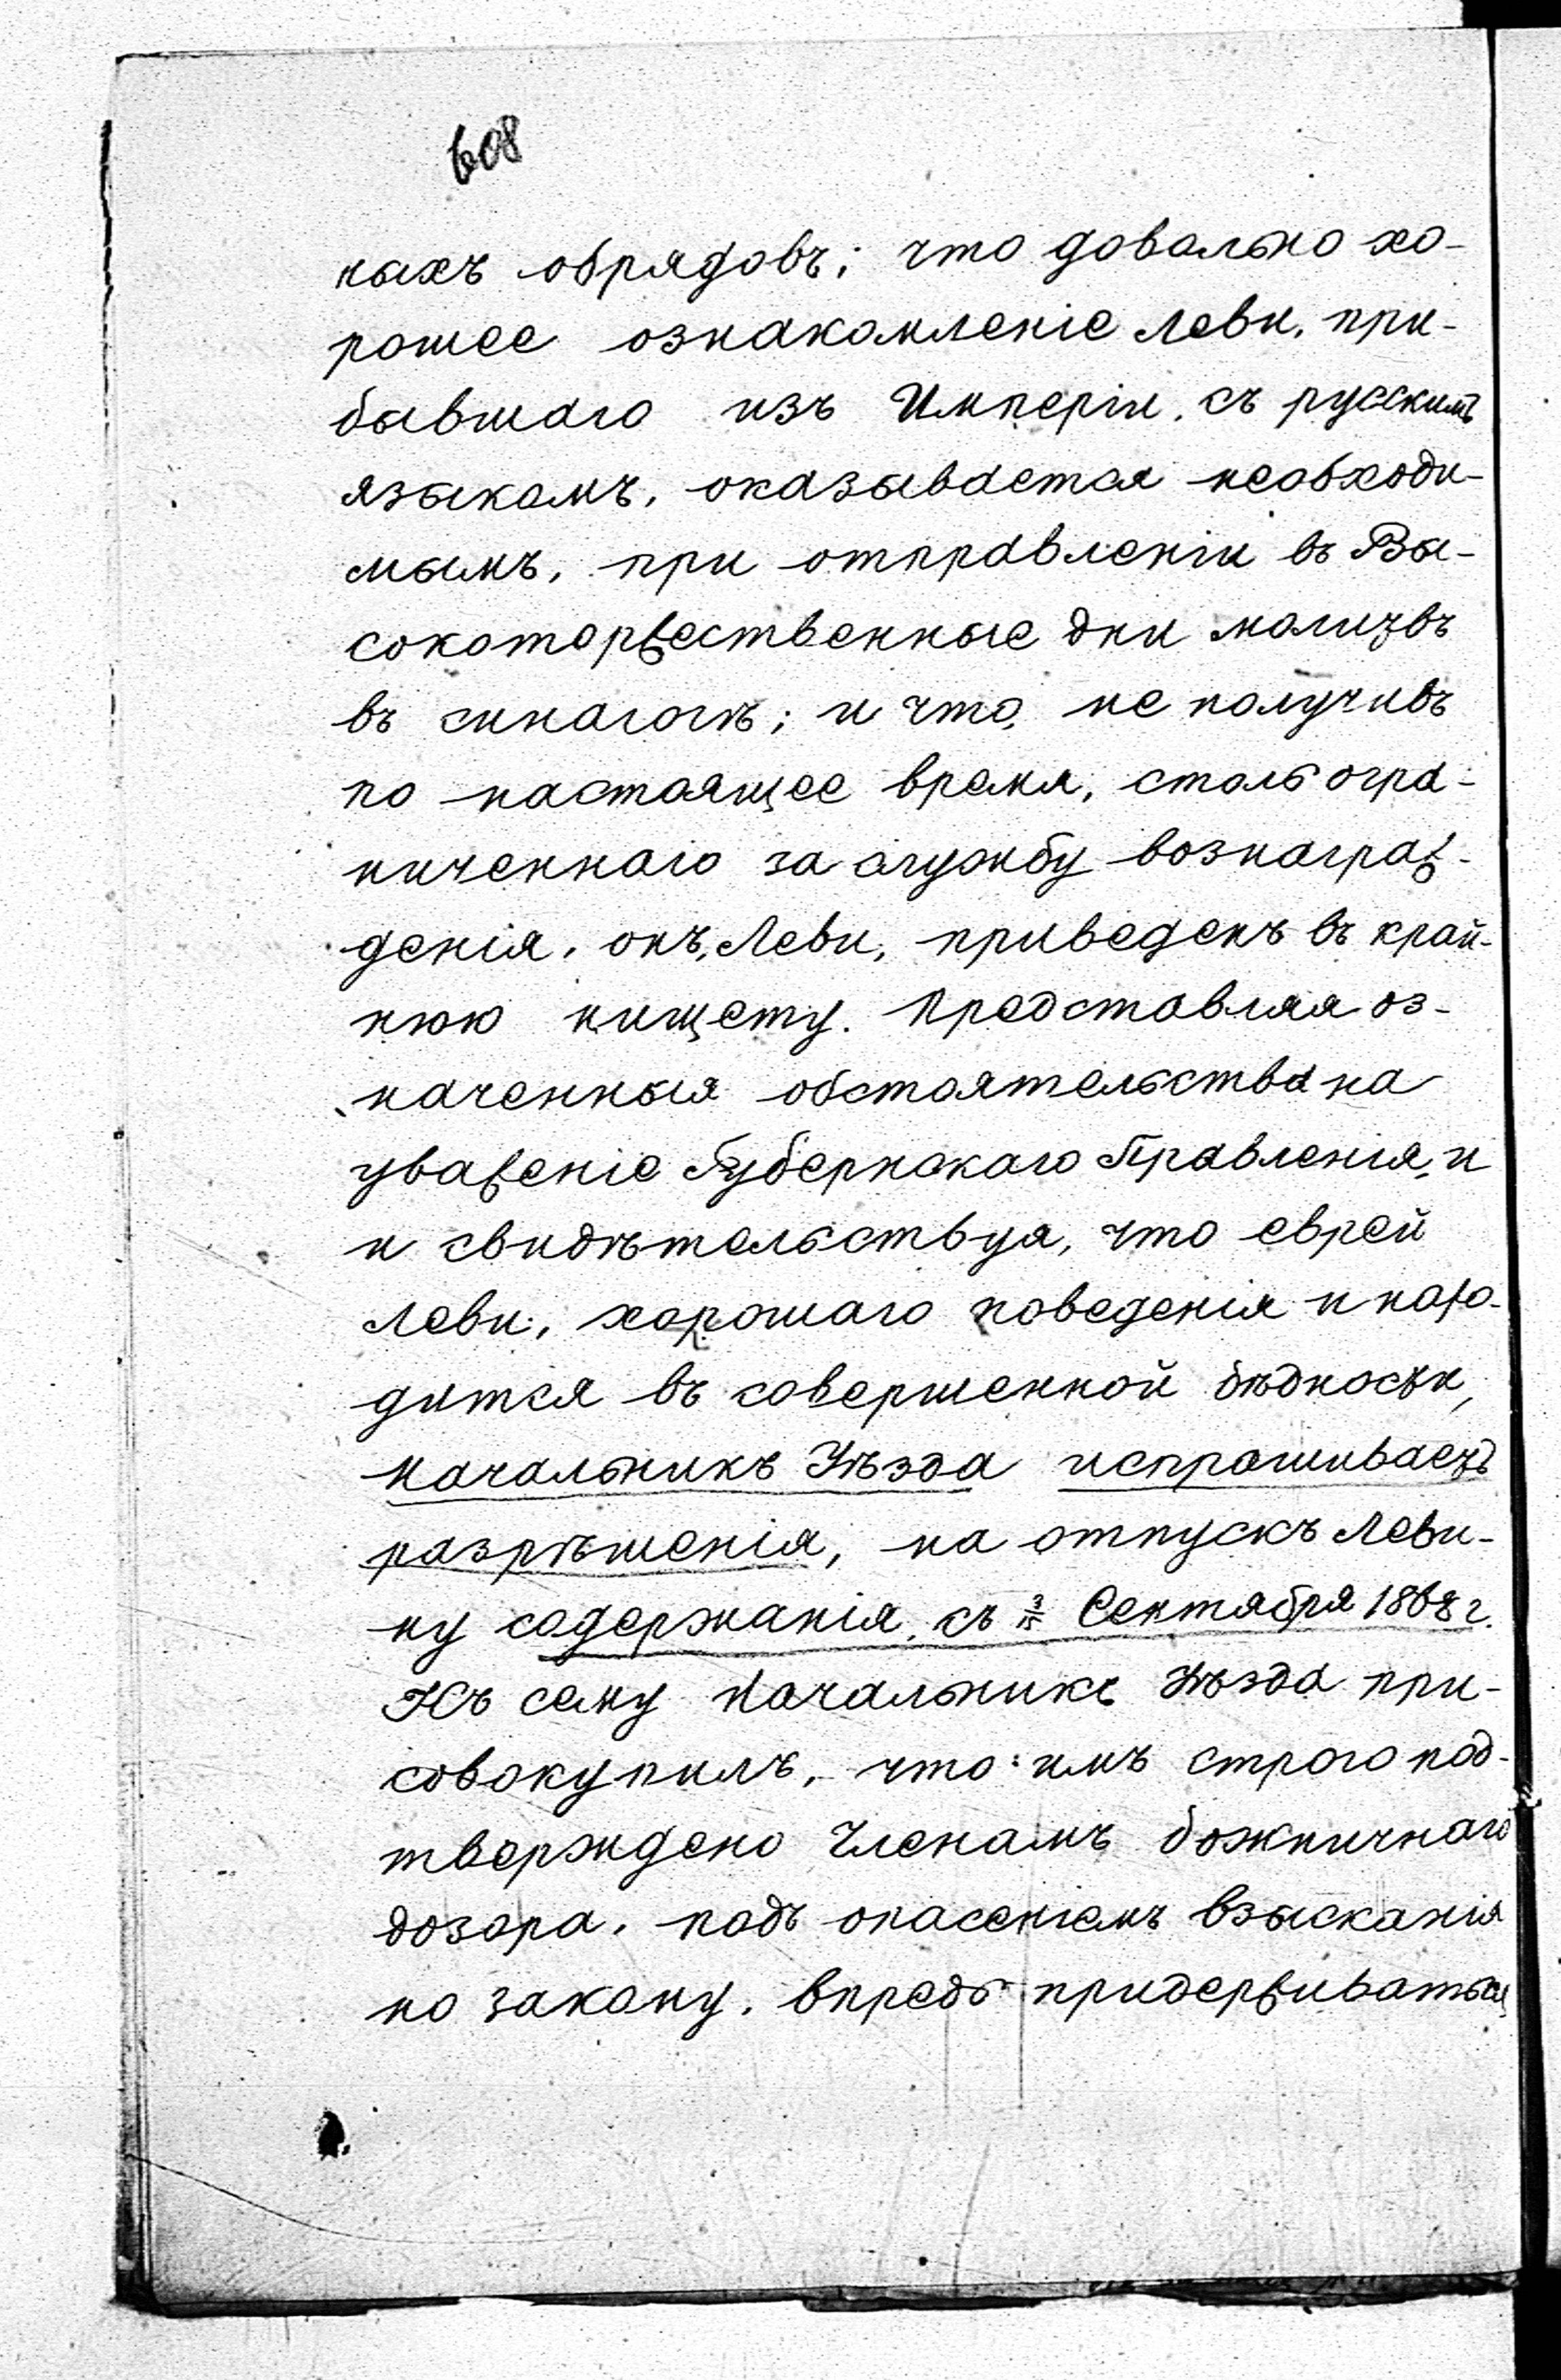 608
ныхъ обрядовъ; что довольно хо-
рошее ознакомленіе Леви, при-
бывшаго изъ Имперіи, съ русскимъ
языкомъ, оказывается необходи-
мымъ, при отправленіи въ Вы-
сокоторжественные дни молитвъ
въ синагогѣ; и что, не получивъ
по настоящее время, столь огра-
ниченнаго за службу вознаграж-
денія, онъ, Леви, приведенъ въ край-
нюю нищету. Представляя оз-
наченныя обстоятельства на
уваженіе Губернскаго Правленія, и
и свидѣтельствуя, что еврей
Леви, хорошаго поведенія и нахо-
дится въ совершенной бѣдности,
Начальникъ Уѣзда испрашиваетъ
разрѣшенія, на отпускъ Леви-
ну содержанія, съ 3/15 Сентября 1868 г.
Къ сему Начальникъ Уѣзда при-
совокупилъ, что имъ строго под-
тверждено Членамъ божничнаго
дозора, подъ опасеніемъ взысканія
по закону, впредь придерживаться